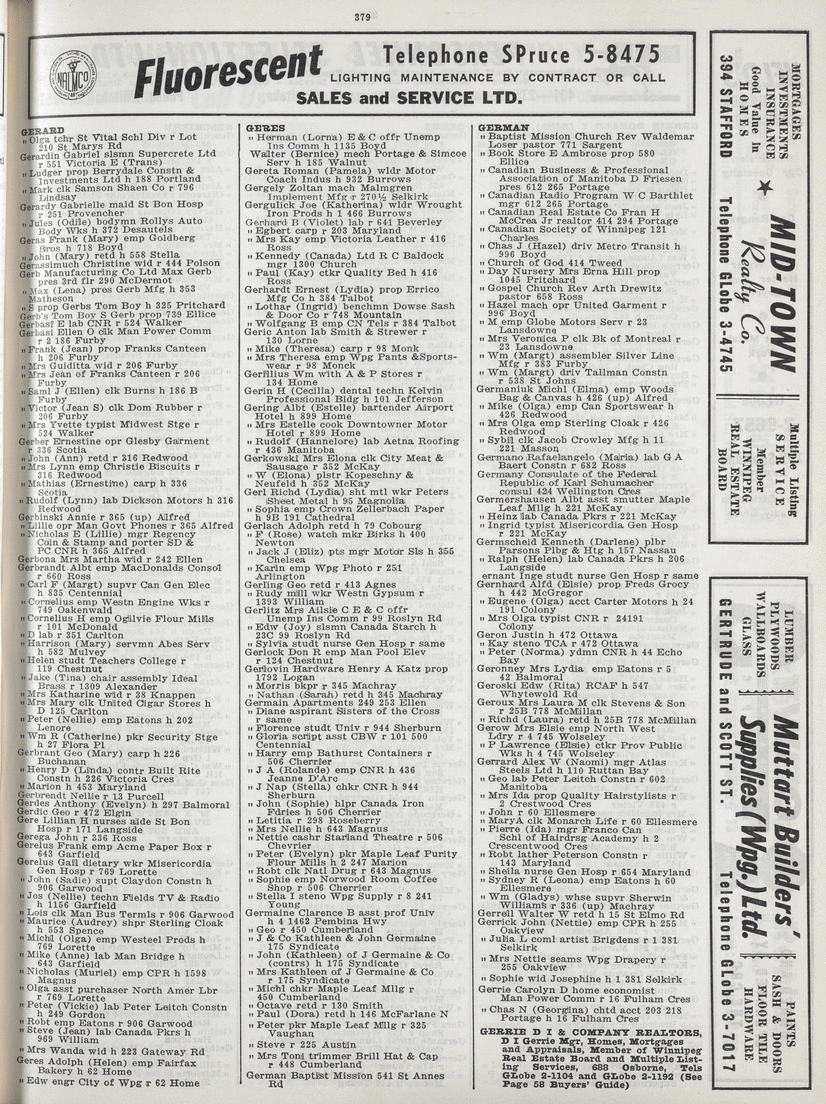 379
NALMCO
Fluorescent
Telephone SPruce 5-8475
LIGHTING MAINTENANCE BY CONTRACT OR CALL
SALES and SERVICE LTD.
GERARD
" Olga tchr St Vital Schl Div r Lot
210 St Marys Rd
Gerardin Gabriel slsmn Supercrete Ltd
r 551 Victoria E (Trans)
" Ludger prop Berrydale Constn &
Investments Ltd h 188 Portland
" Mark clk Samson Shaen Co r 796
Lindsay
Gerardy Gabrielle maid St Bon Hosp
r 251 Provencher
" Jules (Odile) bodymn Rollys Auto
Body Wks h 372 Desautels
Geras Frank (Mary) emp Goldberg
Bros h 718 Boyd
" John (Mary) retd h 558 Stella
Gerassimuch Christine wid r 444 Polson
Gerb Manufacturing Co Ltd Max Gerb
pres 3rd flr 290 McDermot
" Max (Lena) pres Gerb Mfg h 353
Matheson
" S prop Gerbs Tom Boy h 325 Pritchard
Gerb's Tom Boy S Gerb prop 739 Ellice
Gerbasi E lab CNR r 524 Walker
Gerbasi Ellen O clk Man Power Comm
r 2 186 Furby
" Frank (Jean) prop Franks Canteen
h 206 Furby
" Mrs Guiditta wid r 206 Furby
" Mrs Jean of Franks Canteen r 206
Furby
" Saml J (Ellen) clk Burns h 186 B
Furby
" Victor (Jean S) clk Dom Rubber r
206 Furby
" Mrs Yvette typist Midwest Stge r
524 Walker
Gerber Ernestine opr Glesby Garment
r 336 Scotia
" John (Ann) retd r 316 Redwood
" Mrs Lynn emp Christie Biscuits r
316 Redwood
" Mathias (Ernestine) carp h 336
Scotia
" Rudolf (Lynn) lab Dickson Motors h 316
Redwood
Gerbinski Annie r 365 (up) Alfred
" Lillie opr Man Govt Phones r 365 Alfred
" Nicholas E (Lillie) mgr Regency
Coin & Stamp and porter SD &
PC CNR h 365 Alfred
Gerbona Mrs Martha wid r 242 Ellen
Gerbrandt Albt emp MacDonalds Consol
r 660 Ross
" Carl F (Margt) supvr Can Gen Elec
h 835 Centennial
" Cornelius emp Westn Engine Wks r
749 Oakenwald
" Cornelius H emp Ogilvie Flour Mills
r 101 McDonald
" D lab r 351 Carlton
" Harrison (Mary) servmn Abes Serv
h 582 Mulvey
" Helen studt Teachers College r
119 Chestnut
" Jake (Tina) chair assembly Ideal
Brass r 1309 Alexander
" Mrs Katharine wid r 38 Knappen
" Mrs Mary clk United Cigar Stores h
D 125 Carlton
" Peter (Nellie) emp Eatons h 202
Lenore
" Wm R (Catherine) pkr Security Stge
h 27 Flora Pl
Gerbrant Geo (Mary) carp h 226
Buchanan
" Henry D (Linda) contr Built Rite
Constn h 226 Victoria Cres
" Marion h 453 Maryland
Gerbrendt Nellie r 13 Purcell
Gerdes Anthony (Evelyn) h 297 Balmoral
Gerdic Geo r 472 Elgin
Gere Lillian H nurses aide St Bon
Hosp r 171 Langside
Gerega John r 336 Ross
Gerelus Frank emp Acme Paper Box r
643 Garfield
Gerelus Gail dietary wkr Misericordia
Gen Hosp r 769 Lorette
" John (Sadie) supt Claydon Constn h
906 Garwood
" Jos (Nellie) techn Fields TV & Radio
h 1156 Garfield
" Lois clk Man Bus Termls r 906 Garwood
" Maurice (Audrey) shpr Sterling Cloak
h 553 Spence
" Michl (Olga) emp Westeel Prods h
769 Lorette
" Mike (Anne) lab Man Bridge h
643 Garfield
" Nicholas (Muriel) emp CPR h 1598
Magnus
" Olga asst purchaser North Amer Lbr
r 769 Lorette
" Peter (Vickie) lab Peter Leitch Constn
h 249 Gordon
" Robt emp Eatons r 906 Garwood
" Steve (Jean) lab Canada Pkrs h
969 William
" Mrs Wanda wid h 223 Gateway Rd
Geres Adolph (Helen) emp Fairfax
Bakery h 62 Home
" Edw engr City of Wpg r 62 Home
GERES
" Herman (Lorna) E & C offr Unemp
Ins Comm h 1135 Boyd
Walter (Bernice) mech Portage & Simcoe
Serv h 185 Walnut
Gereta Roman (Pamela) wldr Motor
Coach Indus h 932 Burrows
Gergely Zoltan mach Malmgren
Implement Mfg r 270½ Selkirk
Gergulick Joe (Katherina) wldr Wrought
Iron Prods h 1 466 Burrows
Gerhard B (Violet) lab r 641 Beverley
" Egbert carp r 203 Maryland
" Mrs Kay emp Victoria Leather r 416
Ross
" Kennedy (Canada) Ltd R C Baldock
mgr 1300 Church
" Paul (Kay) ctkr Quality Bed h 416
Ross
Gerhardt Ernest (Lydia) prop Errico
Mfg Co h 384 Talbot
" Lothar (Ingrid) benchmn Dowse Sash
& Door Co r 748 Mountain
" Wolfgang B emp CN Tels r 384 Talbot
Geric Anton lab Smith & Strewer r
130 Lorne
" Mike (Theresa) carp r 98 Monk
" Mrs Theresa emp Wpg Pants &Sports-
wear r 98 Monck
Gerillius Wm with A & P Stores r
134 Home
Gerin H (Cecilia) dental techn Kelvin
Professional Bldg h 101 Jefferson
Gering Albt (Estelle) bartender Airport
Hotel h 899 Home
" Mrs Estelle cook Downtowner Motor
Hotel r 899 Home
" Rudolf (Hannelore) lab Aetna Roofing
r 436 Manitoba
Gerkowski Mrs Elona clk City Meat &
Sausage r 352 McKay
" W (Elona) plstr Kopeschny &
Neufeld h 352 McKay
Gerl Richd (Lydia) sht mtl wkr Peters
Sheet Metal h 95 Magnolia
" Sophia emp Crown Zellerbach Paper
h 9B 191 Cathedral
Gerlach Adolph retd h 79 Cobourg
" F (Rose) watch mkr Birks h 400
Newton
" Jack J (Eliz) pts mgr Motor Sls h 355
Chelsea
" Karin emp Wpg Photo r 251
Arlington
Gerling Geo retd r 413 Agnes
" Rudy mill wkr Westn Gypsum r
1393 William
Gerlitz Mrs Ailsie C E & C offr
Unemp Ins Comm r 99 Roslyn Rd
" Edw (Joy) slsmn Canada Starch h
23C 99 Roslyn Rd
" Sylvia studt nurse Gen Hosp r same
Gerlock Don R emp Man Pool Elev
r 124 Chestnut
Gerlovin Hardware Henry A Katz prop
1792 Logan
" Morris bkpr r 345 Machray
" Nathan (Sarah) retd h 345 Machray
Germain Apartments 249 253 Ellen
" Diane aspirant Sisters of the Cross
r same
" Florence studt Univ r 944 Sherburn
" Gloria script asst CBW r 101 500
Centennial
" Harry emp Bathurst Containers r
506 Cherrier
" J A (Rolande) emp CNR h 436
Jeanne D'Arc
" J Nap (Stella) chkr CNR h 944
Sherburn
" John (Sophie) hlpr Canada Iron
Fdries h 506 Cherrier
" Letitia r 298 Roseberry
" Mrs Nellie h 643 Magnus
" Nettie cashr Starland Theatre r 506
Chevrier
" Peter (Evelyn) pkr Maple Leaf Purity
Flour Mills h 2 247 Marion
" Robt clk Natl Drug r 643 Magnus
" Sophie emp Norwood Room Coffee
Shop r 506 Cherrier
" Stella I steno Wpg Supply r 8 241
Young
Germaine Clarence B asst prof Univ
h 4 1462 Pembina Hwy
" Geo r 450 Cumberland
" J & Co Kathleen & John Germaine
175 Syndicate
" John (Kathleen) of J Germaine & Co
(contrs) h 175 Syndicate
" Mrs Kathleen of J Germaine & Co
r 175 Syndicate
" Michl chkr Maple Leaf Mllg r
450 Cumberland
" Octave retd r 130 Smith
" Paul (Dora) retd h 146 McFarlane N
" Peter pkr Maple Leaf Mllg r 325
Vaughan
" Steve r 225 Austin
" Mrs Toni trimmer Brill Hat & Cap
r 448 Cumberland
German Baptist Mission 541 St Annes
Rd
GERMAN
" Baptist Mission Church Rev Waldemar
Loser pastor 771 Sargent
" Book Store E Ambrose prop 580
Ellice
" Canadian Business & Professional
Association of Manitoba D Friesen
pres 612 265 Portage
" Canadian Radio Program W C Barthlet
mgr 612 265 Portage
" Canadian Real Estate Co Fran H
McCrea Jr realtor 414 294 Portage
" Canadian Society of Winnipeg 121
Charles
" Chas J (Hazel) driv Metro Transit h
996 Boyd
" Church of God 414 Tweed
" Day Nursery Mrs Erna Hill prop
1045 Pritchard
" Gospel Church Rev Arth Drewitz
pastor 658 Ross
" Hazel mach opr United Garment r
996 Boyd
" M emp Globe Motors Serv r 23
Lansdowne
" Mrs Veronica P clk Bk of Montreal r
23 Lansdowne
" Wm (Margt) assembler Silver Line
Mfg r 383 Furby
" Wm (Margt) driv Tallman Constn
r 538 St Johns
Germaniuk Michl (Elma) emp Woods
Bag & Canvas h 426 (up) Alfred
" Mike (Olga) emp Can Sportswear h
426 Redwood
" Mrs Olga emp Sterling Cloak r 426
Redwood
" Sybil clk Jacob Crowley Mfg h 11
221 Masson
Germano Rafaelangelo (Maria) lab G A
Baert Constn r 682 Ross
Germany Consulate of the Federal
Republic of Karl Schumacher
consul 424 Wellington Cres
Germershausen Albt asst smutter Maple
Leaf Mllg h 221 McKay
" Heinz lab Canada Pkrs r 221 McKay
" Ingrid typist Misericordia Gen Hosp
r 221 McKay
Germscheid Kenneth (Darlene) plbr
Parsons Plbg & Htg h 157 Nassau
" Ralph (Helen) lab Canada Pkrs h 206
Langside
ernant Inge studt nurse Gen Hosp r same
Gernhard Alfd (Elsie) prop Freds Grocy
h 442 McGregor
" Eugene (Olga) acct Carter Motors h 24
191 Colony
" Mrs Olga typist CNR r 24191
Colony
Geron Justin h 472 Ottawa
" Kay steno TCA r 472 Ottawa
" Peter (Norma) ydmn CNR h 44 Echo
Bay
Geronney Mrs Lydia emp Eatons r 5
42 Balmoral
Geroski Edw (Rita) RCAF h 547
Whytewold Rd
Geroux Mrs Laura M clk Stevens & Son
r 25B 778 McMillan
" Richd (Laura) retd h 25B 778 McMillan
Gerow Mrs Elsie emp North West
Ldry r 4 745 Wolseley
" P Lawrence (Elsie) ctkr Prov Public
Wks h 4 745 Wolseley
Gerrard Alex W (Naomi) mgr Atlas
Steels Ltd h 110 Ruttan Bay
" Geo lab Peter Leitch Constn r 602
Manitoba
" Mrs Ida prop Quality Hairstylists r
2 Crestwood Cres
" John r 60 Ellesmere
" MaryA clk Monarch Life r 60 Ellesmere
" Pierre (Ida) mgr Franco Can
Schl of Hairdrsg Academy h 2
Crescentwood Cres
" Robt lather Peterson Constn r
143 Maryland
" Sheila nurse Gen Hosp r 654 Maryland
" Sydney R (Leona) emp Eatons h 60
Ellesmere
" Wm (Gladys) whse supvr Sherwin
Williams r 336 (up) Machray
Gerrell Walter W retd h 15 St Elmo Rd
Gerrick John (Nettie) emp CPR h 255
Oakview
" Julia L coml artist Brigdens r 1 381
Selkirk
" Mrs Nettie seams Wpg Drapery r
255 Oakview
" Sophie wid Josephine h 1 381 Selkirk
Gerrie Carolyn D home economist
Man Power Comm r 16 Fulham Cres
" Chas N (Georgina) chtd acct 203 218
Portage h 16 Fulham Cres
GERRIE D I & COMPANY REALTORS,
D I Gerrie Mgr, Homes, Mortgages
and Appraisals, Member of Winnipeg
Real Estate Board and Multiple List-
ing Services, 688 Osborne, Tels
GLobe 2-1104 and GLobe 2-1192 (See
Page 58 Buyers' Guide)
MORTGAGES
INVESTMENTS
INSURANCE
Good Value in
HOMES
394 STAFFORD
★ MID-TOWN
Realty Co.
Telephone GLobe 3-4745
Multiple Listing
SERVICE
Member
WINNIPEG
REAL ESTATE
BOARD
LUMBER
PLYWOODS
WALLBOARDS
GLASS
Muttart Builders'
Supplies (Wpg.) Ltd.
GERTRUDE and SCOTT ST.
Telephone GLobe 3-7017
PAINTS
SASH & DOORS
FLOOR TILE
HARDWARE